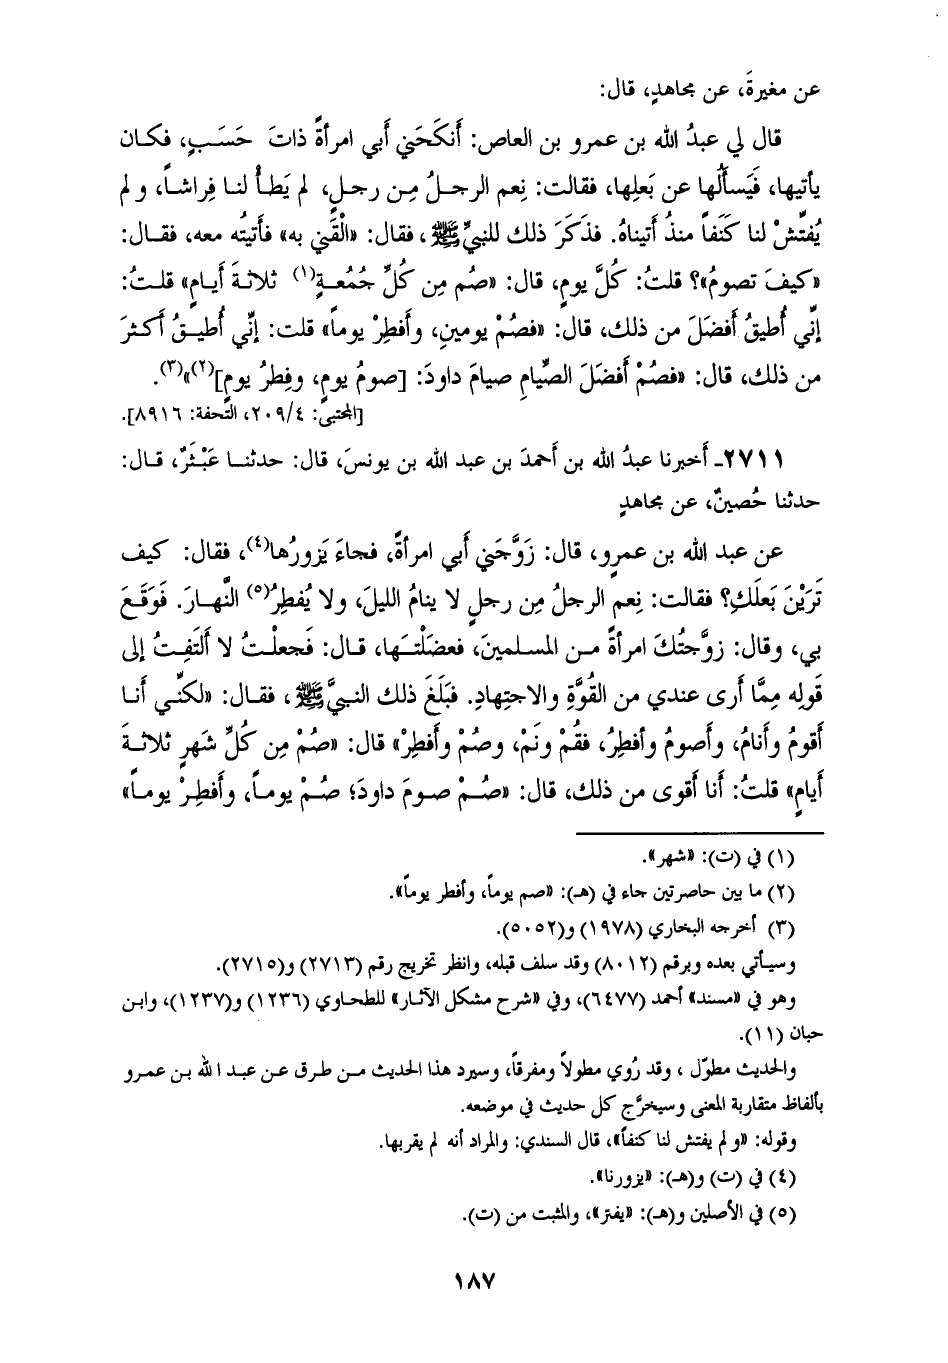 عن مغيرةَ، عن مجاهدٍ، قال:
قال لي عبدُ الله بن عمرو بن العاص: أَنكَحَني أَبي امرأةً ذاتَ حَسَبٍ، فكان
يأتيها، فَيَسأَلُها عن بَعلِها، فقالت: نِعم الرجلُ مِن رجلٍ، لم يَطأْ لنا فِراشاً، ولم
يُفتِّشْ لنا كَنَفاً منذُ أَتيناهُ. فذَكَرَ ذلك للنبيِّ ﷺ، فقال: «الْقَني به» فأَتيتُه معه، فقال:
«كيفَ تصومُ»؟ قلتُ: كُلَّ يومٍ، قال: «صُم مِن كُلِّ جُمُعةٍ(١) ثلاثةَ أَيامٍ» قلتُ:
إنِّي أُطيقُ أَفضَلَ من ذلك، قال: «فصُمْ يومينِ، وأَفطِرْ يوماً» قلت: إنِّي أُطيقُ أَكثرَ
من ذلك، قال: «فصُمْ أَفضَلَ الصِّيامِ صيامَ داودَ: [صومُ يومٍ، وفِطرُ يومٍ](٢)»(٣).
[المجتبى: ٢٠٩/٤، التحفة: ٨٩١٦].
٢٧١١ـ أَخبرنا عبدُ الله بن أَحمدَ بن عبد الله بن يونسَ، قال: حدثنا عَبْثَرٌ، قال:
حدثنا حُصينٌ، عن مجاهدٍ
عن عبد الله بن عمرٍو، قال: زَوَّجَني أَبي امرأةً، فجاءَ يَزورُها(٤)، فقال: كيف
تَرَيْنَ بَعلَكِ؟ فقالت: نِعم الرجلُ مِن رجلٍ لا ينامُ الليلَ، ولا يُفطِرُ(٥) النَّهارَ. فَوَقَعَ
بي، وقال: زوَّجتُكَ امرأةً من المسلمينَ، فعضَلْتَها، قال: فَجعلْتُ لا أَلتَفِتُ إلى
قَولِه مِمَّا أَرى عندي من القُوَّةِ والاجتِهادِ. فبَلَغَ ذلك النبيَّ ﷺ، فقال: «لكنِّي أَنا
أَقومُ وأَنامُ، وأَصومُ وأُفطِرُ، فقُمْ ونَمْ، وصُمْ وأَفطِرْ» قال: «صُمْ مِن كُلِّ شَهرٍ ثلاثةَ
أَيامٍ» قلتُ: أَنا أَقوى من ذلك، قال: «صُمْ صومَ داودَ؛ صُمْ يوماً، وأَفطِرْ يوماً»
(١) في (ت): «شهر».
(٢) ما بين حاصرتين جاء في (هـ): «صم يوماً، وأفطر يوماً».
(٣) أخرجه البخاري (١٩٧٨) و(٥٠٥٢).
وسيأتي بعده وبرقم (٨٠١٢) وقد سلف قبله، وانظر تخريج رقم (٢٧١٣) و(٢٧١٥).
وهو في «مسند» أحمد (٦٤٧٧)، وفي «شرح مشكل الآثار» للطحاوي (١٢٣٦) و(١٢٣٧)، وابن
حبان (١١).
والحديث مطوّل، وقد رُوي مطولاً ومفرقاً، وسيرد هذا الحديث من طرق عن عبد الله بن عمرو
بألفاظ متقاربة المعنى وسيخرَّج كل حديث في موضعه.
وقوله: «ولم يفتش لنا كنفاً»، قال السندي: والمراد أنه لم يقربها.
(٤) في (ت) و(هـ): «يزورنا».
(٥) في الأصلين و(هـ): «يفتر»، والمثبت من (ت).
١٨٧